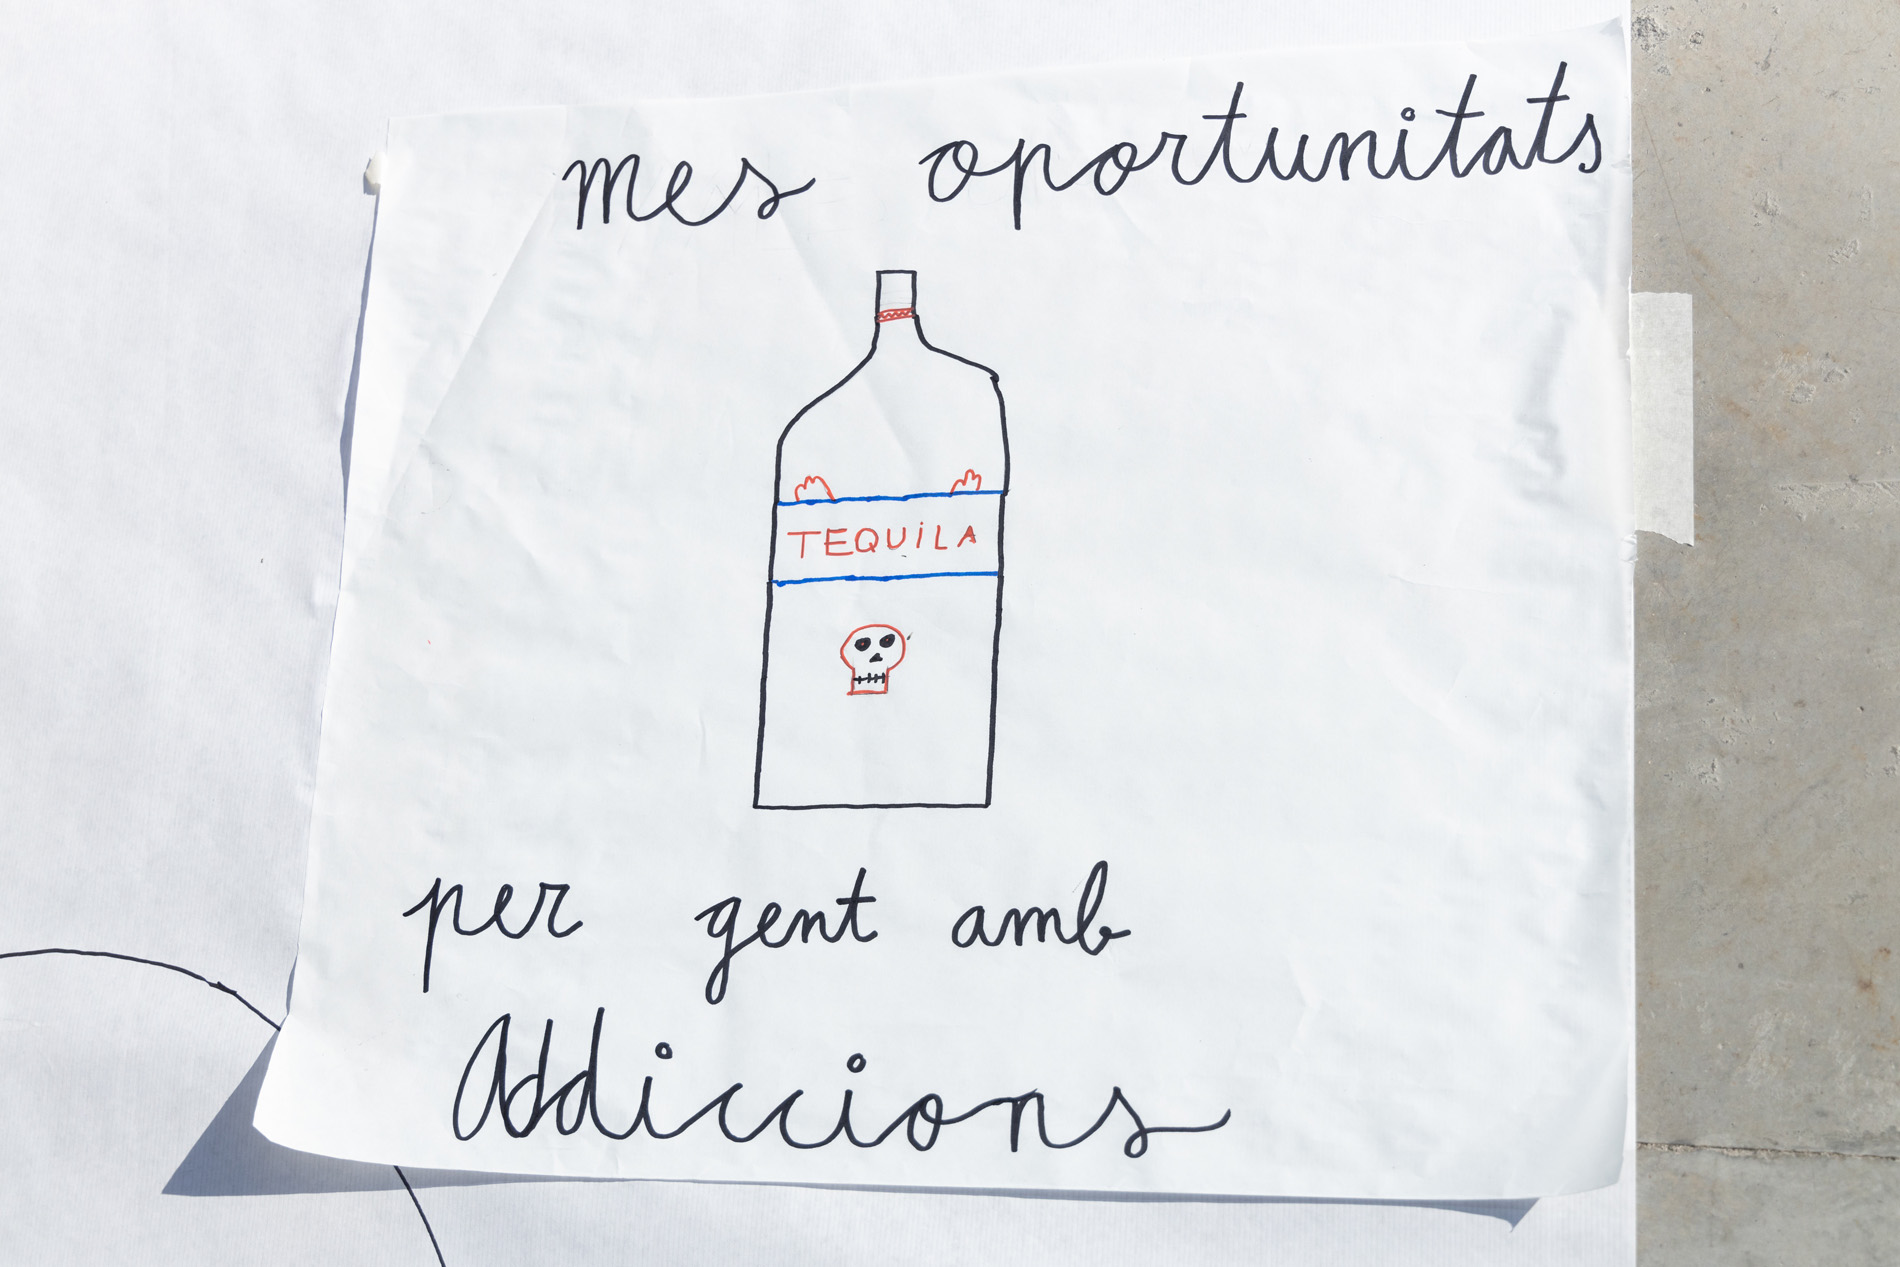 mes oportunitats
TEQUiLA
per gent amb
Addiccions